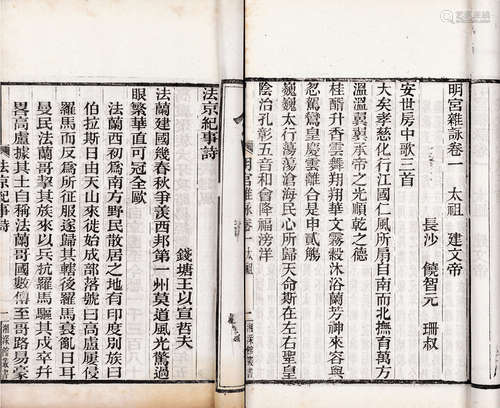 明宮雜詠卷一　太祖　建文帝
長沙　饒智元　珊叔
安世房中歌三首
大矣孝慈化行江國仁風所扇自南而北撫育萬方
溫溫翼翼承帝之光順乾之德
桂醑升香雲舞翔翔華文霧縠沐浴蘭芳神來容與
忽駕鸞皇慶雲離合是用申貳觴
巍巍太行蕩蕩滄海民心所歸天命斯在左右聖皇
陰治孔彰五音和會降福滂洋
明宮雜詠
卷一
太祖
一
湘淥館叢書
法京紀事詩
錢塘王以宣哲夫
法蘭建國幾春秋爭羨西邦第一州莫道風光驚過
眼繁華直可冠全歐
法蘭西初為南方野民散居之地有印度別族曰
伯拉斯日由天山來徙始成部落號曰高盧屢侵
羅馬而反為所征服遂歸其轄後羅馬衰亂日耳
曼民法蘭哥挈其族來以兵抗羅馬驅其戍卒幷
畧高盧據其土自稱法蘭哥國數傳至哥路易豪
法京紀事詩
一
湘淥館叢書